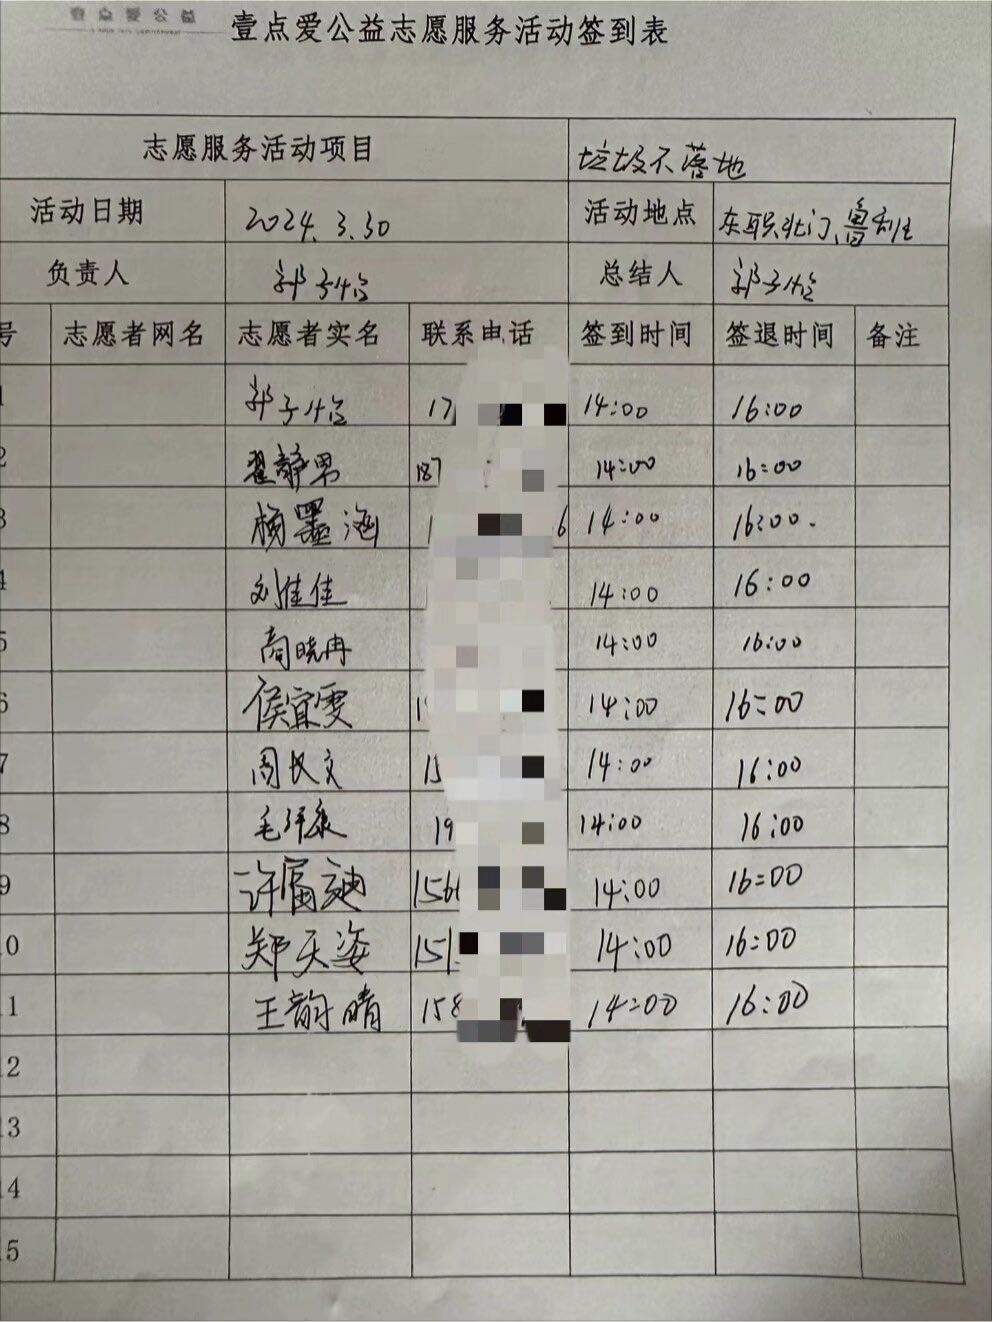 壹点爱公益
壹点爱公益志愿服务活动签到表
志愿服务活动项目 垃圾不落地
活动日期 2024.3.30 活动地点 东职北门、鲁班
负责人 郭子怡 总结人 郭子怡
号 志愿者网名 志愿者实名 联系电话 签到时间 签退时间 备注
1 郭子怡 17 14:00 16:00
2 翟静男 187 14:00 16:00
3 杨墨涵 1 6 14:00 16:00.
4 刘佳佳 14:00 16:00
5 商晓冉 14:00 16:00
6 侯宜雯 1 14:00 16:00
7 周文 15 14:00 16:00
8 毛康 19 14:00 16:00
9 许富迪 156 14:00 16:00
10 郑天姿 151 14:00 16:00
11 王韵晴 158 14:00 16:00
12
13
14
15